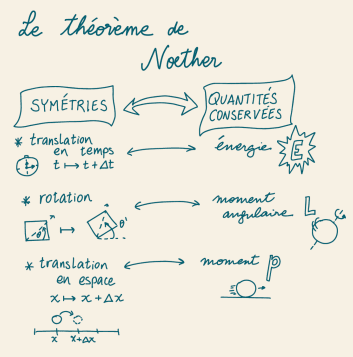 Le théorème de
Nœther
SYMÉTRIES
QUANTITÉS
CONSERVÉES
* translation
en temps
t ↦ t + Δt
énergie
E
* rotation
θ
θ'
moment
angulaire
L
* translation
en espace
x ↦ x + Δx
x
x+Δx
moment
p